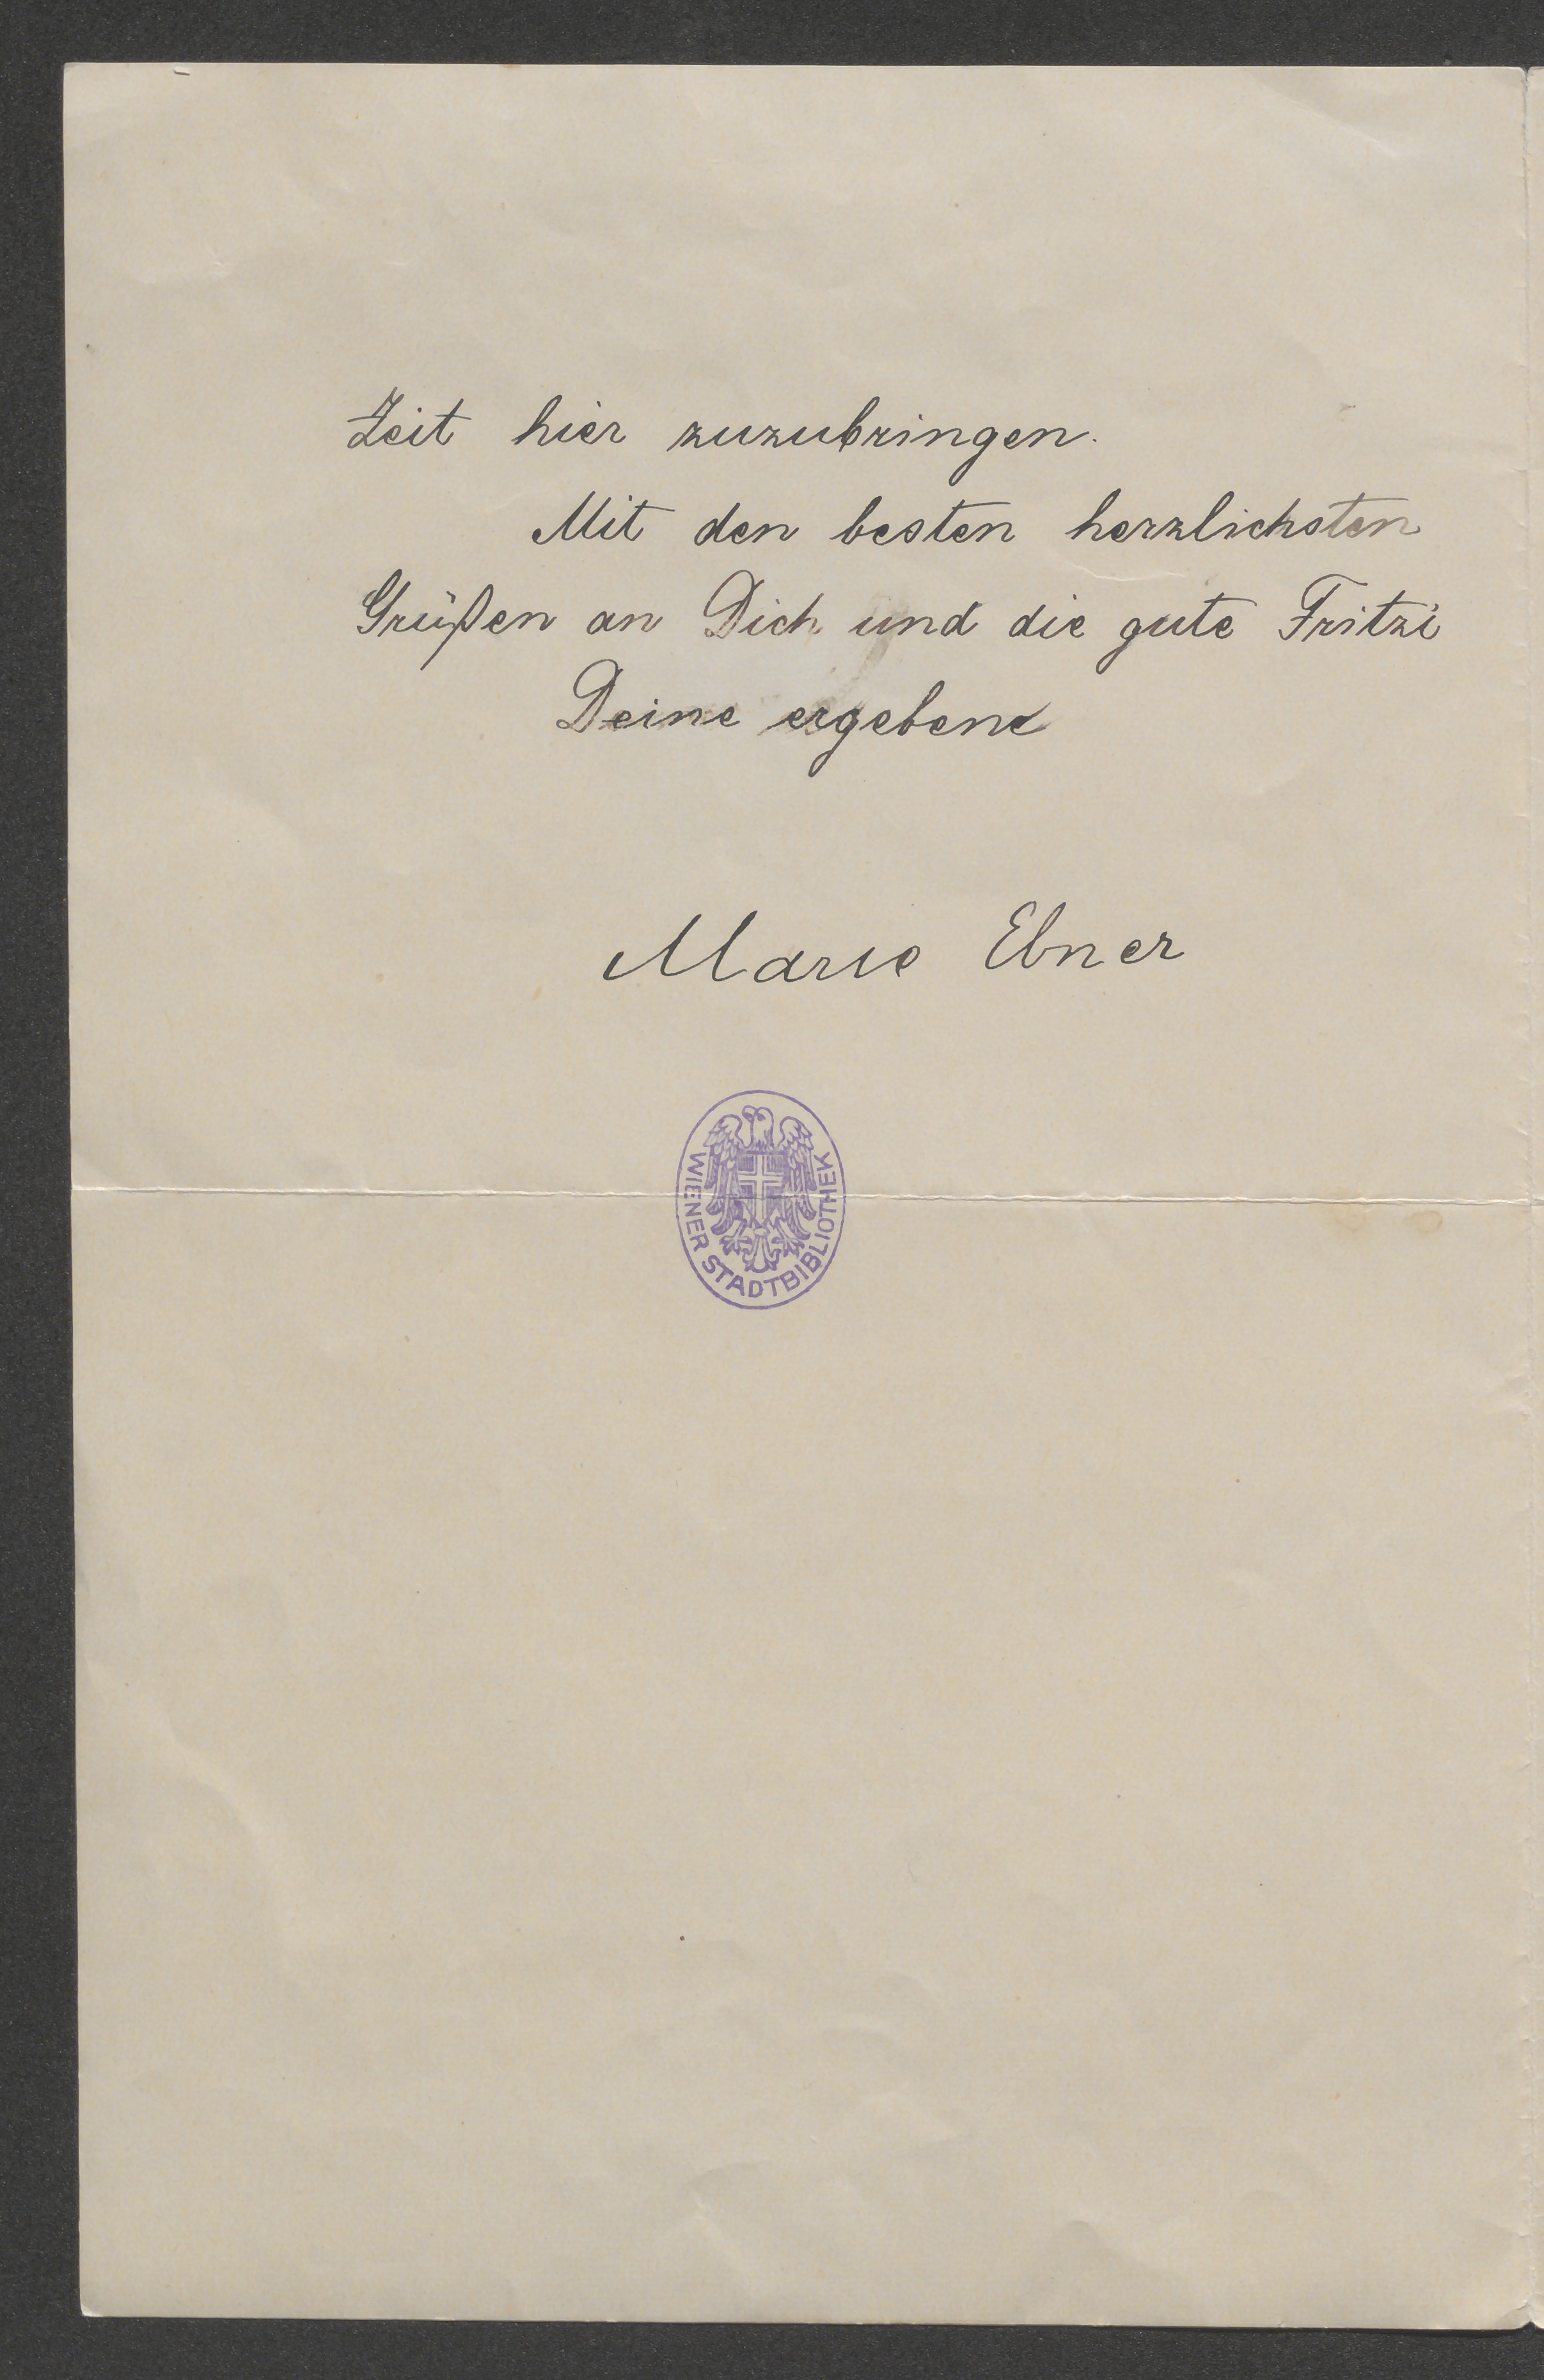 Zeit hier zuzubringen.
Mit den besten herzlichsten
Grüßen an Dich und die gute Fritzi
Deine ergebene
Marie Ebner
WIENER STADTBIBLIOTHEK